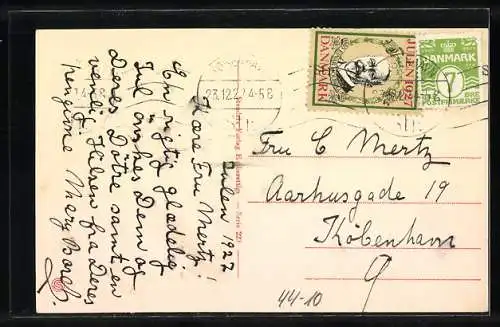 Julen 1927
Kære Fru Mertz!
En rigtig glædelig
Jul ønskes Dem og
Deres Døtre samt en
venlig Hilsen fra Deres
hengivne Mary Borch.
23.12.27.4-5 E
JULEN 1927
DANMARK
DANMARK
7
ØRE
POSTFRIMÆRKE
Fru C Mertz
Aarhusgade 19
København
Ø
44-10